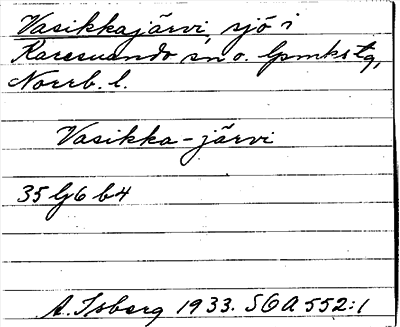 Vasikkajärvi, sjö i
Karesuando sn o. lpmkstg,
Norrb. l.
Vasikka-järvi
35 Ij 6 b 4
A. Isberg 1933. SOA 552:1